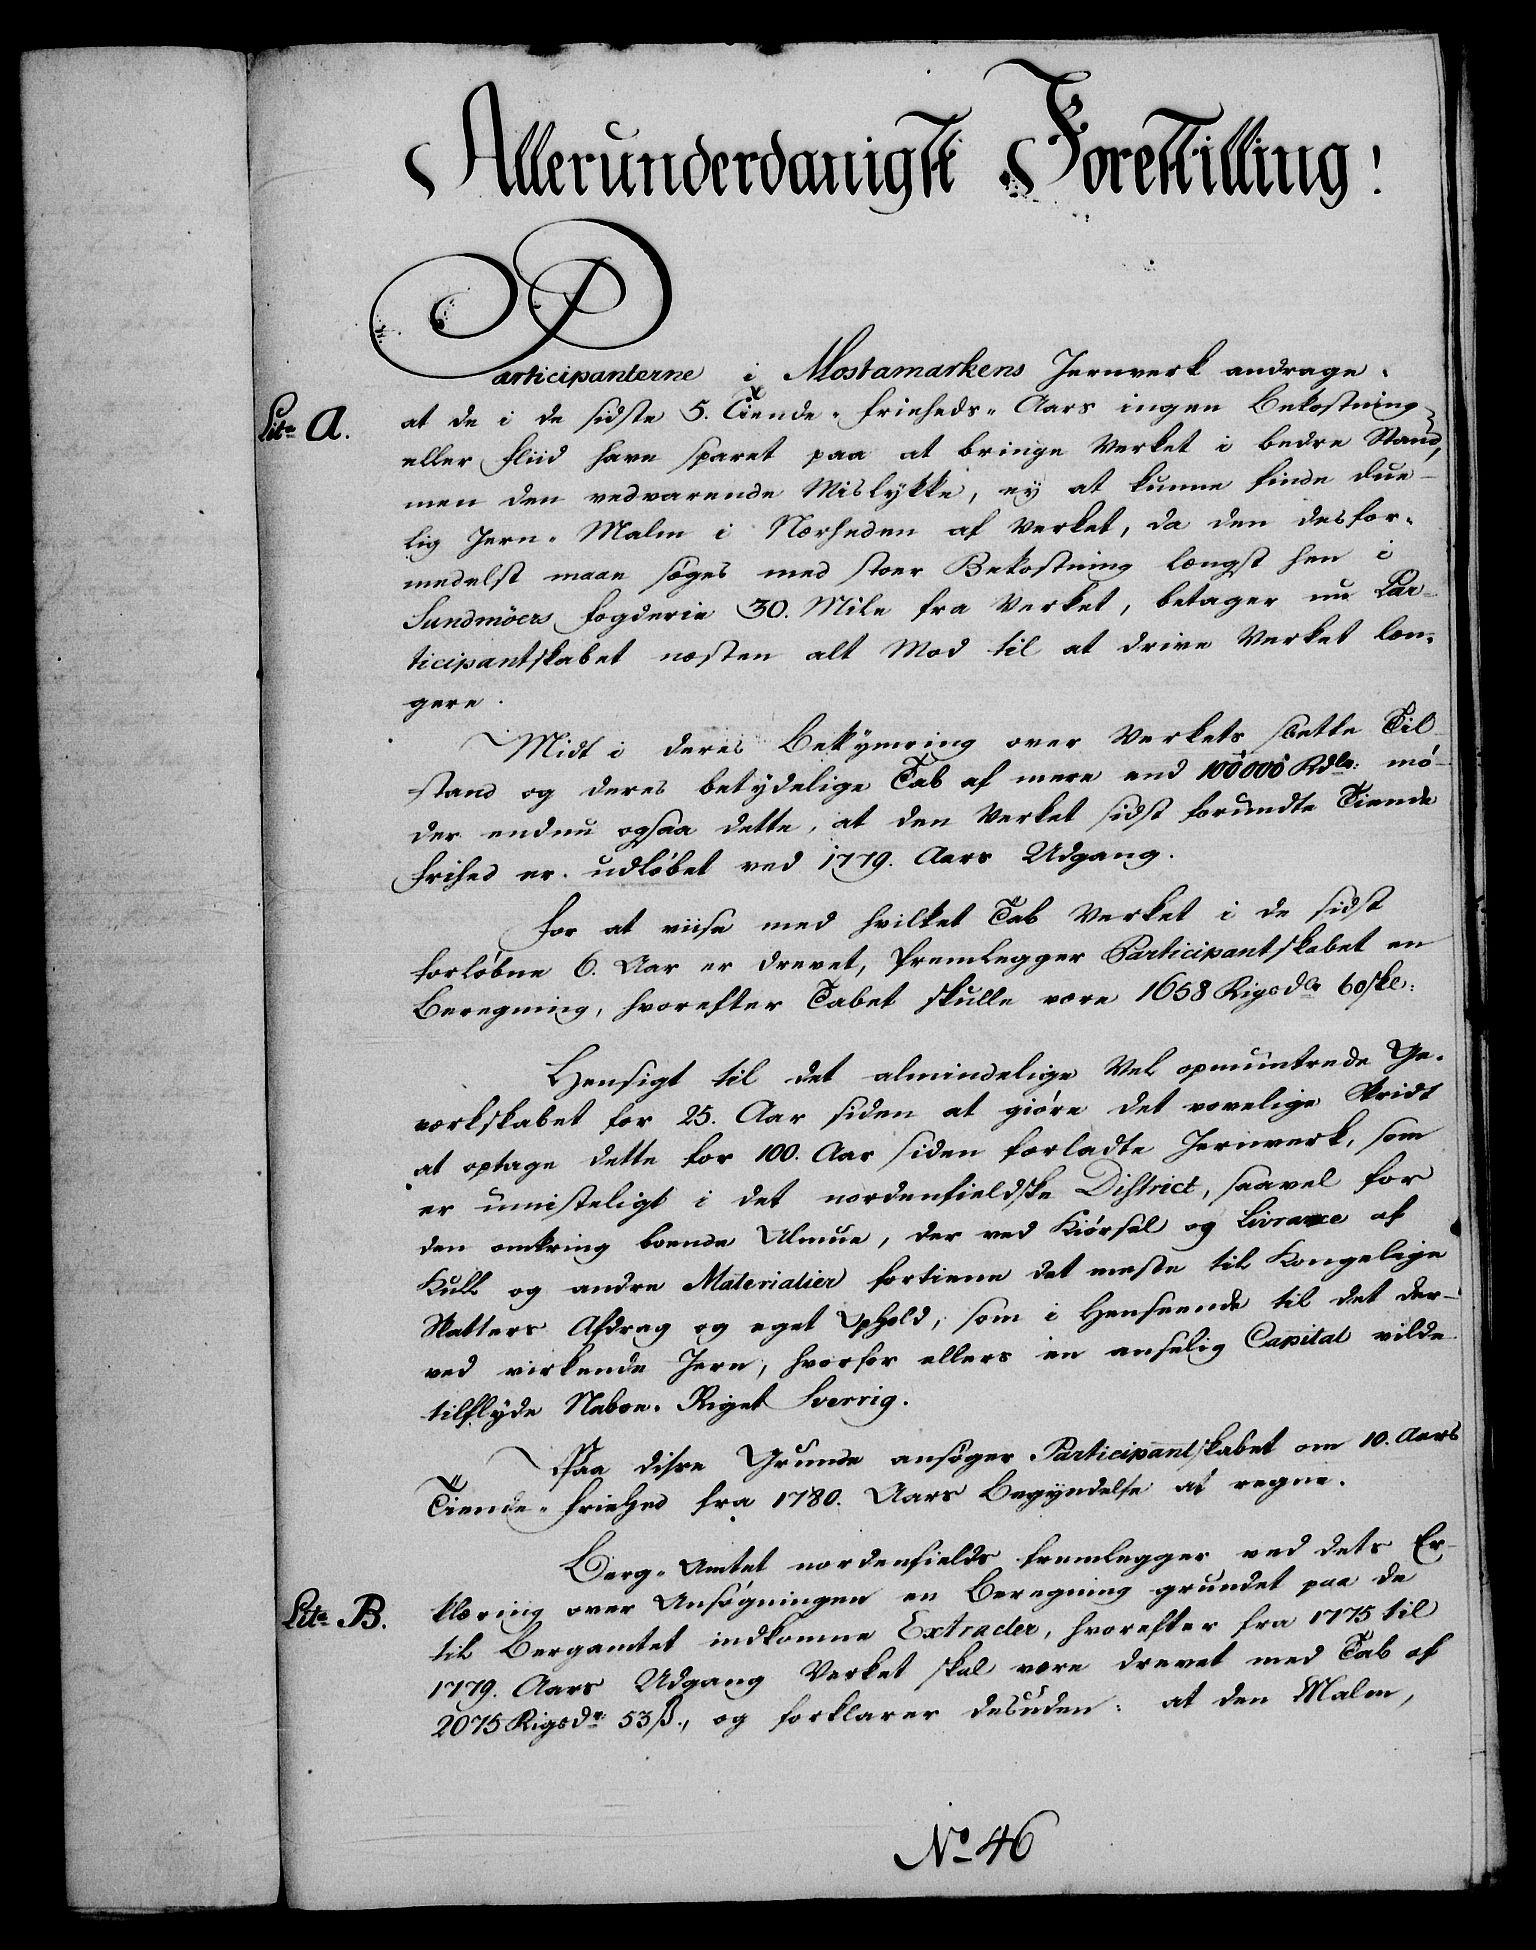 Allerunderdanigste Forestilling!
Participanterne i Mostamarkens Jernverk andrage:
Litr A. at de i de sidste 5. Tiende-Frieheds-Aars ingen Bekostning
eller Fliid have sparet paa at bringe Verket i bedre Stand,
men den vedvarende Mislykke, ey at kunne finde due-
lig Jern-Malm i Nærheden af Verket, da den desfor-
medelst maae søges med stoer Bekostning længst hen i
Sundmöers Fogderie 30. Mile fra Verket, betager nu Par-
ticipantskabet næsten alt Mod til at drive Verket læn-
gere.
Midt i deres Bekymring over Verkets slette Til-
stand og deres betydelige Tab af mere end 100000 Rdlr: mö-
der endnu ogsaa dette, at den Verket sidst forundte Tiende
Frihed er udlöbet ved 1779. Aars Udgang.
For at viise med hvilket Tab Verket i de sidst
forlöbne 6. Aar er drevet, fremlegger Participantskabet en
Beregning, hvorefter Tabet skulle være 1658 Rigsdr 60 skl:
Hensigt til det almindelige Vel opmuntrede Ge-
værkskabet for 25. Aar siden at giöre det vovelige Skridt
at optage dette for 100. Aar siden forladte Jernverk, som
er umisteligt i det nordenfieldske District, saavel for
den omkring boende Almue, der ved Kiörsel og Livrance af
Kull og andre Materialier fortiene det meste til Kongelige
Skatters Afdrag og eget Ophold, som i Henseende til det der-
ved virkende Jern, hvorfor ellers en anselig Capital vilde
tilflyde Naboe-Riget Sverrig.
Paa disse Grunde ansöger Participantskabet om 10. Aars
Tiende-Friehed fra 1780. Aars Begyndelse at regne.
Berg-Amtet nordenfields fremlegger ved dets Er-
Litr B. klæring over Ansögningen en Beregning grundet paa de
til Bergamtet indkomne Extracter, hvorefter fra 1775 til
1779. Aars Udgang Verket skal være drevet med Tab af
2075 Rigsdr 53 ß., og forklarer desuden: at den Malm,
No 46